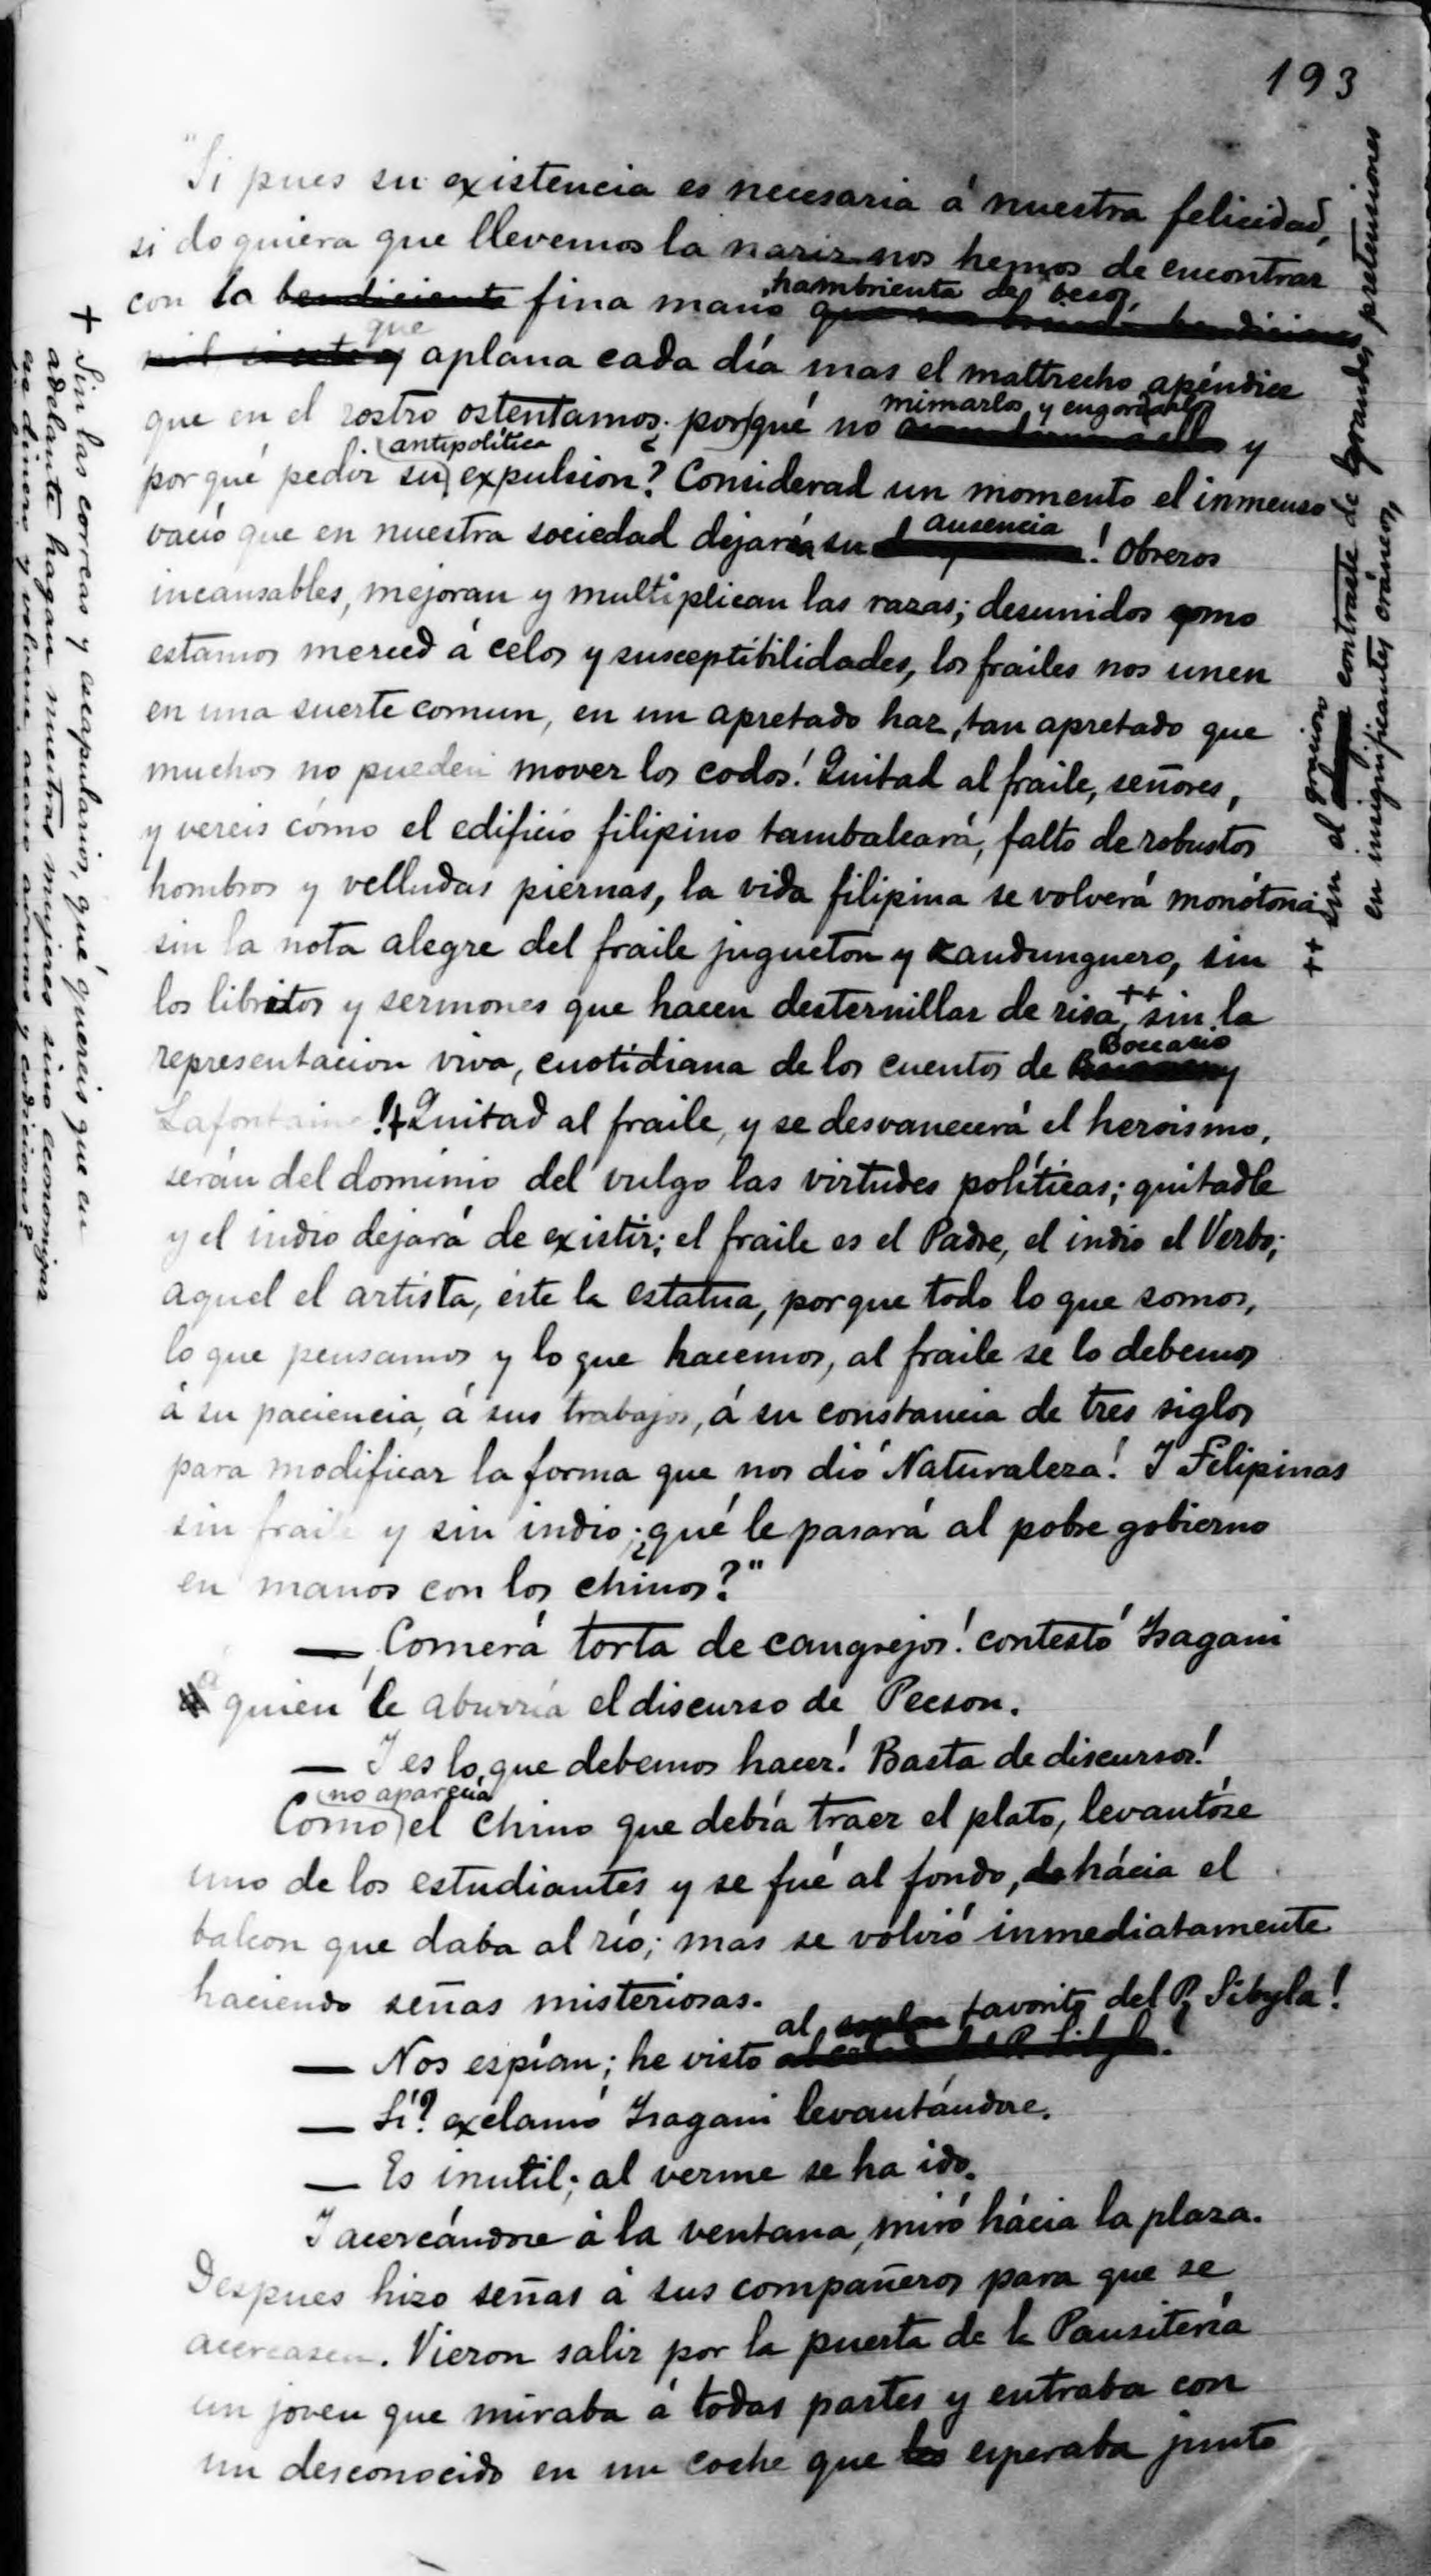 193
"Si pues su existencia es necesaria á nuestra felicidad,
si do quiera que llevemos la nariz nos hemos de encontrar
con la bendiciente fina mano hambrienta de besos,
que aplana cada día mas el maltrecho apéndice
que en el rostro ostentamos ¿por qué no mimarlos y engordarlos y
por qué pedir su antipolítica expulsion? Considerad un momento el inmenso
vacío que en nuestra sociedad dejaría su ausencia! Obreros
incansables, mejoran y multiplican las razas; desunidos como
estamos merced á celos y susceptibilidades, los frailes nos unen
en una suerte comun, en un apretado haz, tan apretado que
muchos no pueden mover los codos! Quitad al fraile, señores,
y vereis cómo el edificio filipino tambaleará, falto de robustos
hombros y velludas piernas, la vida filipina se volverá monótona
sin la nota alegre del fraile jugueton y zandunguero, sin
los libritos y sermones que hacen desternillar de risa, ++ sin la
representacion viva, cuotidiana de los cuentos de Boccacio y
Lafontaine! + Quitad al fraile, y se desvanecerá el heroismo,
serán del dominio del vulgo las virtudes políticas; quitadle
y el indio dejará de existir; el fraile es el Padre, el indio el Verbo;
aquel el artista, éste la estatua, porque todo lo que somos,
lo que pensamos y lo que hacemos, al fraile se lo debemos
á su paciencia, á sus trabajos, á su constancia de tres siglos
para modificar la forma que nos dió Naturaleza! Y Filipinas
sin fraile y sin indio ¿qué le pasará al pobre gobierno
en manos con los chinos?"
— Comerá torta de cangrejos! contestó Isagani
á quien le aburría el discurso de Pecson.
— Y es lo que debemos hacer! Basta de discursos!
Como no aparecía el chino que debía traer el plato, levantóse
uno de los estudiantes y se fué al fondo, hácia el
balcon que daba al río; mas se volvió inmediatamente
haciendo señas misteriosas.
— Nos espían; he visto al favorito del P. Sibyla!
— Sí? exclamó Isagani levantándose.
— Es inutil; al verme se ha ido.
Y acercándose á la ventana, miró hácia la plaza.
Despues hizo señas á sus compañeros para que se
acercasen. Vieron salir por la puerta de la Pansitería
un joven que miraba á todas partes y entraba con
un desconocido en un coche que esperaba junto
+ Sin las correas y escapularios, qué quereis que en
adelante hagan nuestras mujeres sino economizar
ese dinero y volverse acaso avaras y codiciosas?
++ sin el gracioso contraste de grandes pretensiones
en insignificantes cráneos,